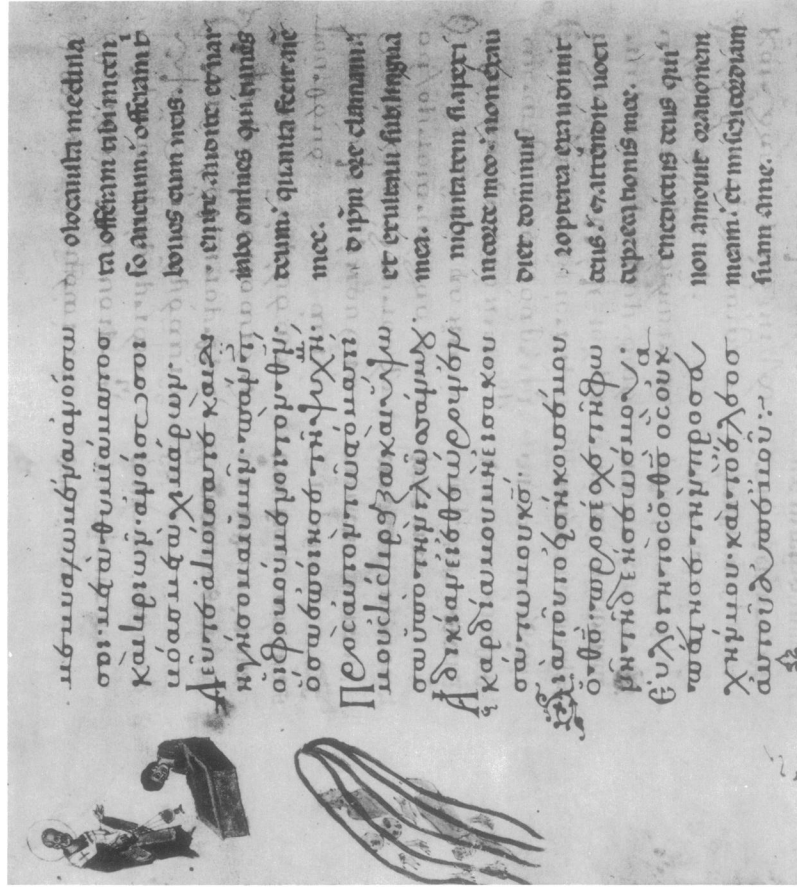 μένα ἀνοίσω
σοι· μετὰ θυμιάματος
καὶ κριῶν· ἀνοίσω σοι
βόας μετὰ χιμάρων.
Δεῦτε ἀκούσατε καὶ
φοβούμενοι τὸν θν
ὅσα ἐποίησε τῇ ψυχῇ
Πρὸς αὐτὸν τῷ στόματί
μου ἐκέκραξα καὶ ὕψωσα
ὑπὸ τὴν γλῶσσάν μου.
Ἀδικίαν εἰ ἐθεώρουν ἐν
καρδία μου μὴ εἰσακου
σάτω μου κς
Διὰ τοῦτο εἰσήκουσέν μου
ὁ θς προσέσχε τῇ φω
νῇ τῆς δεήσεώς μου.
Εὐλογητὸς ὁ θς ὃς οὐκ
ἀπέστησε τὴν προσευ
χήν μου· καὶ τὸ ἔλεος
αὐτοῦ ἀπ᾽ ἐμοῦ:
olocausta medulla
ta offeram tibi incen
so offeram t
boues cum
enite audite et nar
rabo omnes qui timetis
deum: quanta fecit
mee.
d ipm ore clamaui:
et exultaui sub lingua
mea.
niquitatem si aspexi
in corde meo: non exau
diet dominus
ropterea exaudiuit
deus: & attendit uoci
deprecationis mee.
enedictus deus qui
non amouit orationem
meam: et misericordiam
suam a me.